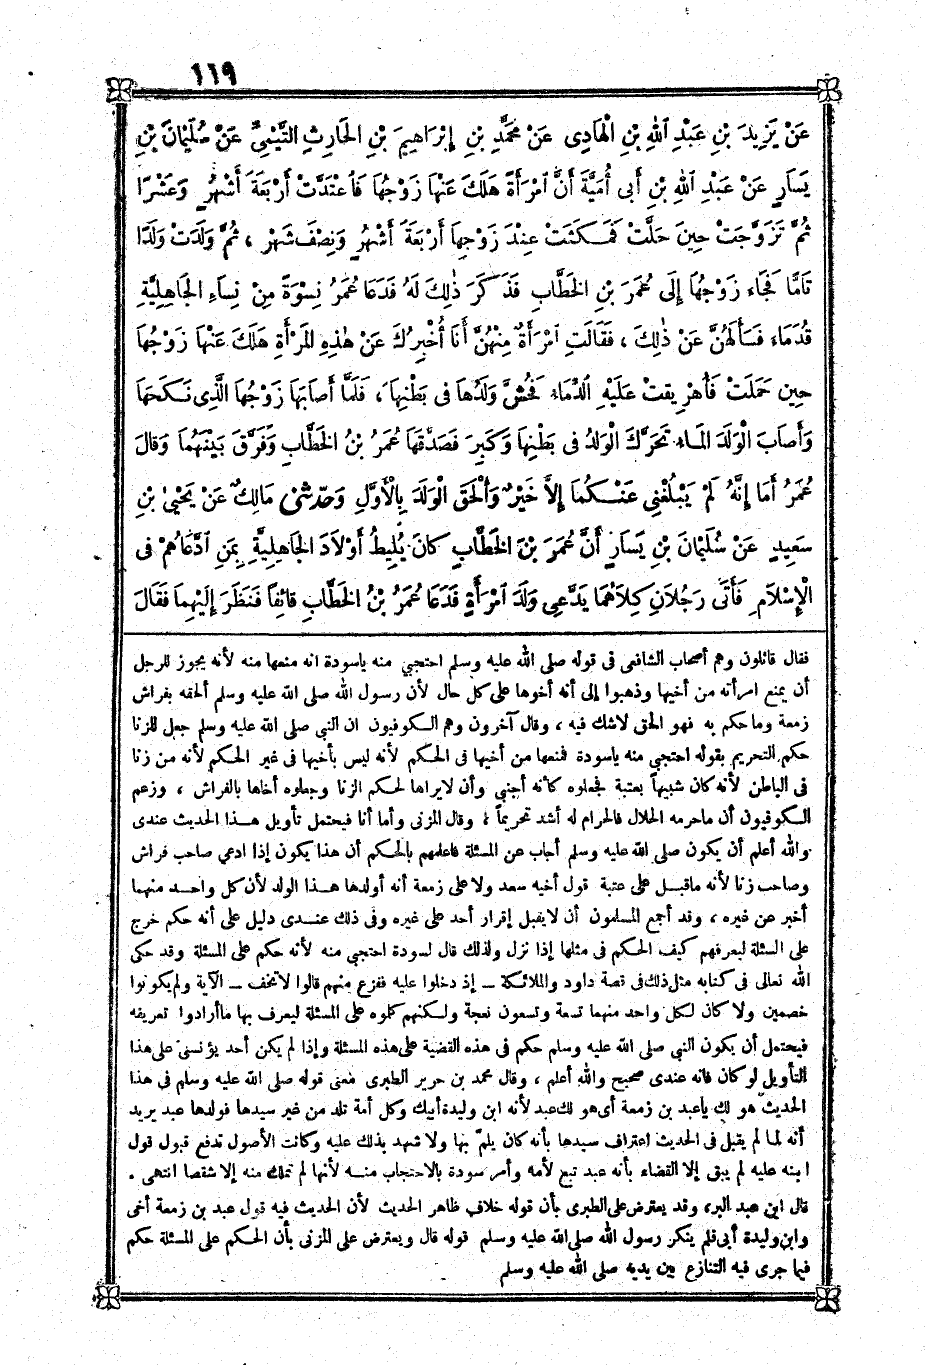 ١١٩
عَنْ يَزِيدَ بْنِ عَبْدِ اللهِ بْنِ الْهَادِى عَنْ مُحَمَّدِ بْنِ إِبْرَاهِيمَ بْنِ الحَارِثِ التَّيْمِيِّ عَنْ سُلَيْمَانَ بْنِ
يَسَارٍ عَنْ عَبْدِ اللهِ بْنِ أَبى أُمَيَّةَ أَنَّ امْرَأَةً هَلَكَ عَنْهَا زَوْجُهَا فَاعْتَدَّتْ أَرْبَعَةَ أَشْهُرٍ وَعَشْرًا
ثُمَّ تَزَوَّجَتْ حِينَ حَلَّتْ فَمَكَثَتْ عِنْدَ زَوْجِهَا أَرْبَعَةَ أَشْهُرٍ وَنِصْفَ شَهْرٍ ، ثُمَّ وَلَدَتْ وَلَدًا
تَامًّا فَجَاءَ زَوْجُهَا إِلَى عُمَرَ بْنِ الخَطَّابِ فَذَكَرَ ذٰلِكَ لَهُ فَدَعَا عُمَرُ نِسْوَةً مِنْ نِسَاءِ الجَاهِلِيَّةِ
قُدَمَاءَ فَسَأَلَهُنَّ عَنْ ذٰلِكَ ، فَقَالَتِ امْرَأَةٌ مِنْهُنَّ أَنَا أُخْبِرُكَ عَنْ هٰذِهِ المَرْأَةِ هَلَكَ عَنْهَا زَوْجُهَا
حِينَ حَمَلَتْ فَأُهْرِيقَتْ عَلَيْهِ الدِّمَاءُ فَحُشَّ وَلَدُهَا فى بَطْنِهَا ، فَلَمَّا أَصَابَهَا زَوْجُهَا الَّذِى نَكَحَهَا
وَأَصَابَ الْوَلَدَ المَاءُ تَحَرَّكَ الْوَلَدُ فى بَطْنِهَا وَكَبِرَ فَصَدَّقَهَا عُمَرُ بْنُ الخَطَّابِ وَفَرَّقَ بَيْنَهُمَا وَقالَ
عُمَرُ أَمَا إِنَّهُ لَمْ يَبْلُغْنِى عَنْكُمَا إِلاَّ خَيْرٌ وَأَلْحَقَ الْوَلَدَ بِالْأَوَّلِ وَحَدَّثَنِى مَالِكٌ عَنْ يَحْيٰى بْنِ
سَعِيدٍ عَنْ سُلَيْمَانَ بْنِ يَسَارٍ أَنَّ عُمَرَ بْنَ الخَطَّابِ كانَ يُلِيطُ أَوْلاَدَ الجَاهِلِيَّةِ بِمَنِ ادَّعَاهُمْ فى
الْإِسْلاَمِ فَأَتَى رَجُلاَنِ كِلاَهُمَا يَدَّعِى وَلَدَ امْرَأَةٍ فَدَعَا عُمَرُ بْنُ الخَطَّابِ قائِفًا فَنَظَرَ إِلَيْهِمَا فَقَالَ
فقال قائلون وهم أصحاب الشافعى فى قوله صلى الله عليه وسلم احتجبي منه ياسودة انه منعها منه لأنه يجوز للرجل
أن يمنع امرأته من أخيها وذهبوا إلى أنه أخوها على كل حال لأن رسول الله صلى الله عليه وسلم ألحقه بفراش
زمعة وماحكم به فهو الحق لاشك فيه ، وقال آخرون وهم الكوفيون ان النبي صلى الله عليه وسلم جعل للزنا
حكم التحريم بقوله احتجبي منه ياسودة فمنعها من أخيها فى الحكم لأنه ليس بأخيها فى غير الحكم لأنه من زنا
فى الباطن لأنه كان شبيهاً بعتبة فجعلوه كأنه أجنبي وأن لايراها لحكم الزنا وجعلوه أخاها بالفراش ، وزعم
الكوفيون أن ماحرمه الحلال فالحرام له أشد تحريماً ؛ وقال المزنى وأما أنا فيحتمل تأويل هذا الحديث عندى
والله أعلم أن يكون صلى الله عليه وسلم أجاب عن المسئلة فاعلمهم بالحكم أن هذا يكون إذا ادعي صاحب فراش
وصاحب زنا لأنه ماقبل على عتبة قول أخيه سعد ولا على زمعة أنه أولدها هذا الولد لأن كل واحد منهما
أخبر عن غيره ، وقد أجمع المسلمون أن لايقبل إقرار أحد على غيره وفى ذلك عندى دليل على أنه حكم خرج
على المسئلة ليعرفهم كيف الحكم فى مثلها إذا نزل ولذلك قال لسودة احتجبي منه لأنه حكم على المسئلة وقد حكى
الله تعالى فى كتابه مثل ذلك فى قصة داود والملائكة ــ إذ دخلوا عليه ففزع منهم قالوا لاتخف ــ الآية ولم يكونوا
خصمين ولا كان لكل واحد منهما تسعة وتسعون نعجة ولكنهم كلموه على المسئلة ليعرف بها ماأرادوا تعريفه
فيحتمل أن يكون النبي صلى الله عليه وسلم حكم فى هذه القضية على هذه المسئلة وإذا لم يكن أحد يؤنسنى على هذا
التأويل لو كان فانه عندى صحيح والله أعلم ، وقال محمد بن جرير الطبرى معنى قوله صلى الله عليه وسلم فى هذا
الحديث هو لك ياعبد بن زمعة أى هو لك عبد لأنه ابن وليدة أبيك وكل أمة تلد من غير سيدها فولدها عبد يريد
أنه لما لم يقبل فى الحديث اعتراف سيدها بأنه كان يلمّ بها ولا شهد بذلك عليه وكانت الأصول تدفع قبول قول
ابنه عليه لم يبق إلا القضاء بأنه عبد تبع لأمه وأمر سودة بالاحتجاب منه لأنها لم تملك منه إلا شقصا انتهى .
قال ابن عبد البر، وقد يعترض على الطبرى بأن قوله خلاف ظاهر الحديث لأن الحديث فيه قول عبد بن زمعة أخى
وابن وليدة أبى فلم ينكر رسول الله صلى الله عليه وسلم قوله قال ويعترض على المزنى بأن الحكم على المسئلة حكم
فيما جرى فيه التنازع بين يديه صلى الله عليه وسلم